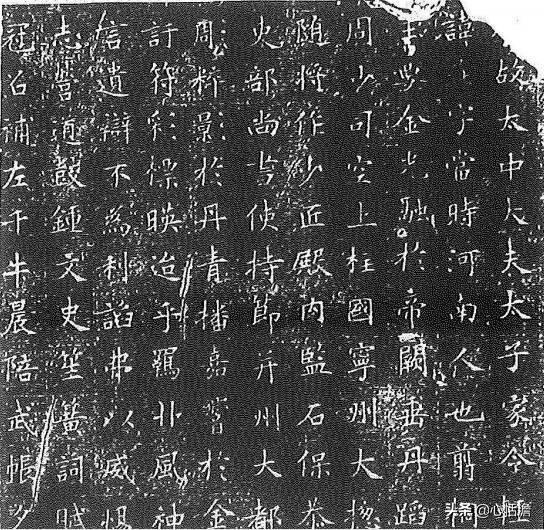 故太中大夫太子家令輕
諱字當時河南人也翦桐
金光融於帝闕垂丹蹈
周少司空上柱國寧州大總
隨將作少匠殿內監石保恭
吏部尚書使持節并州大都
周粹影於丹青播嘉譽於金
符彩標暎迨乎羈丱風神
信遺辯不為利諂弗以威惕
志營道鼓鍾文史笙簧詞賦
冠召補左千牛晨陪武帳夕
头条@心悟澹